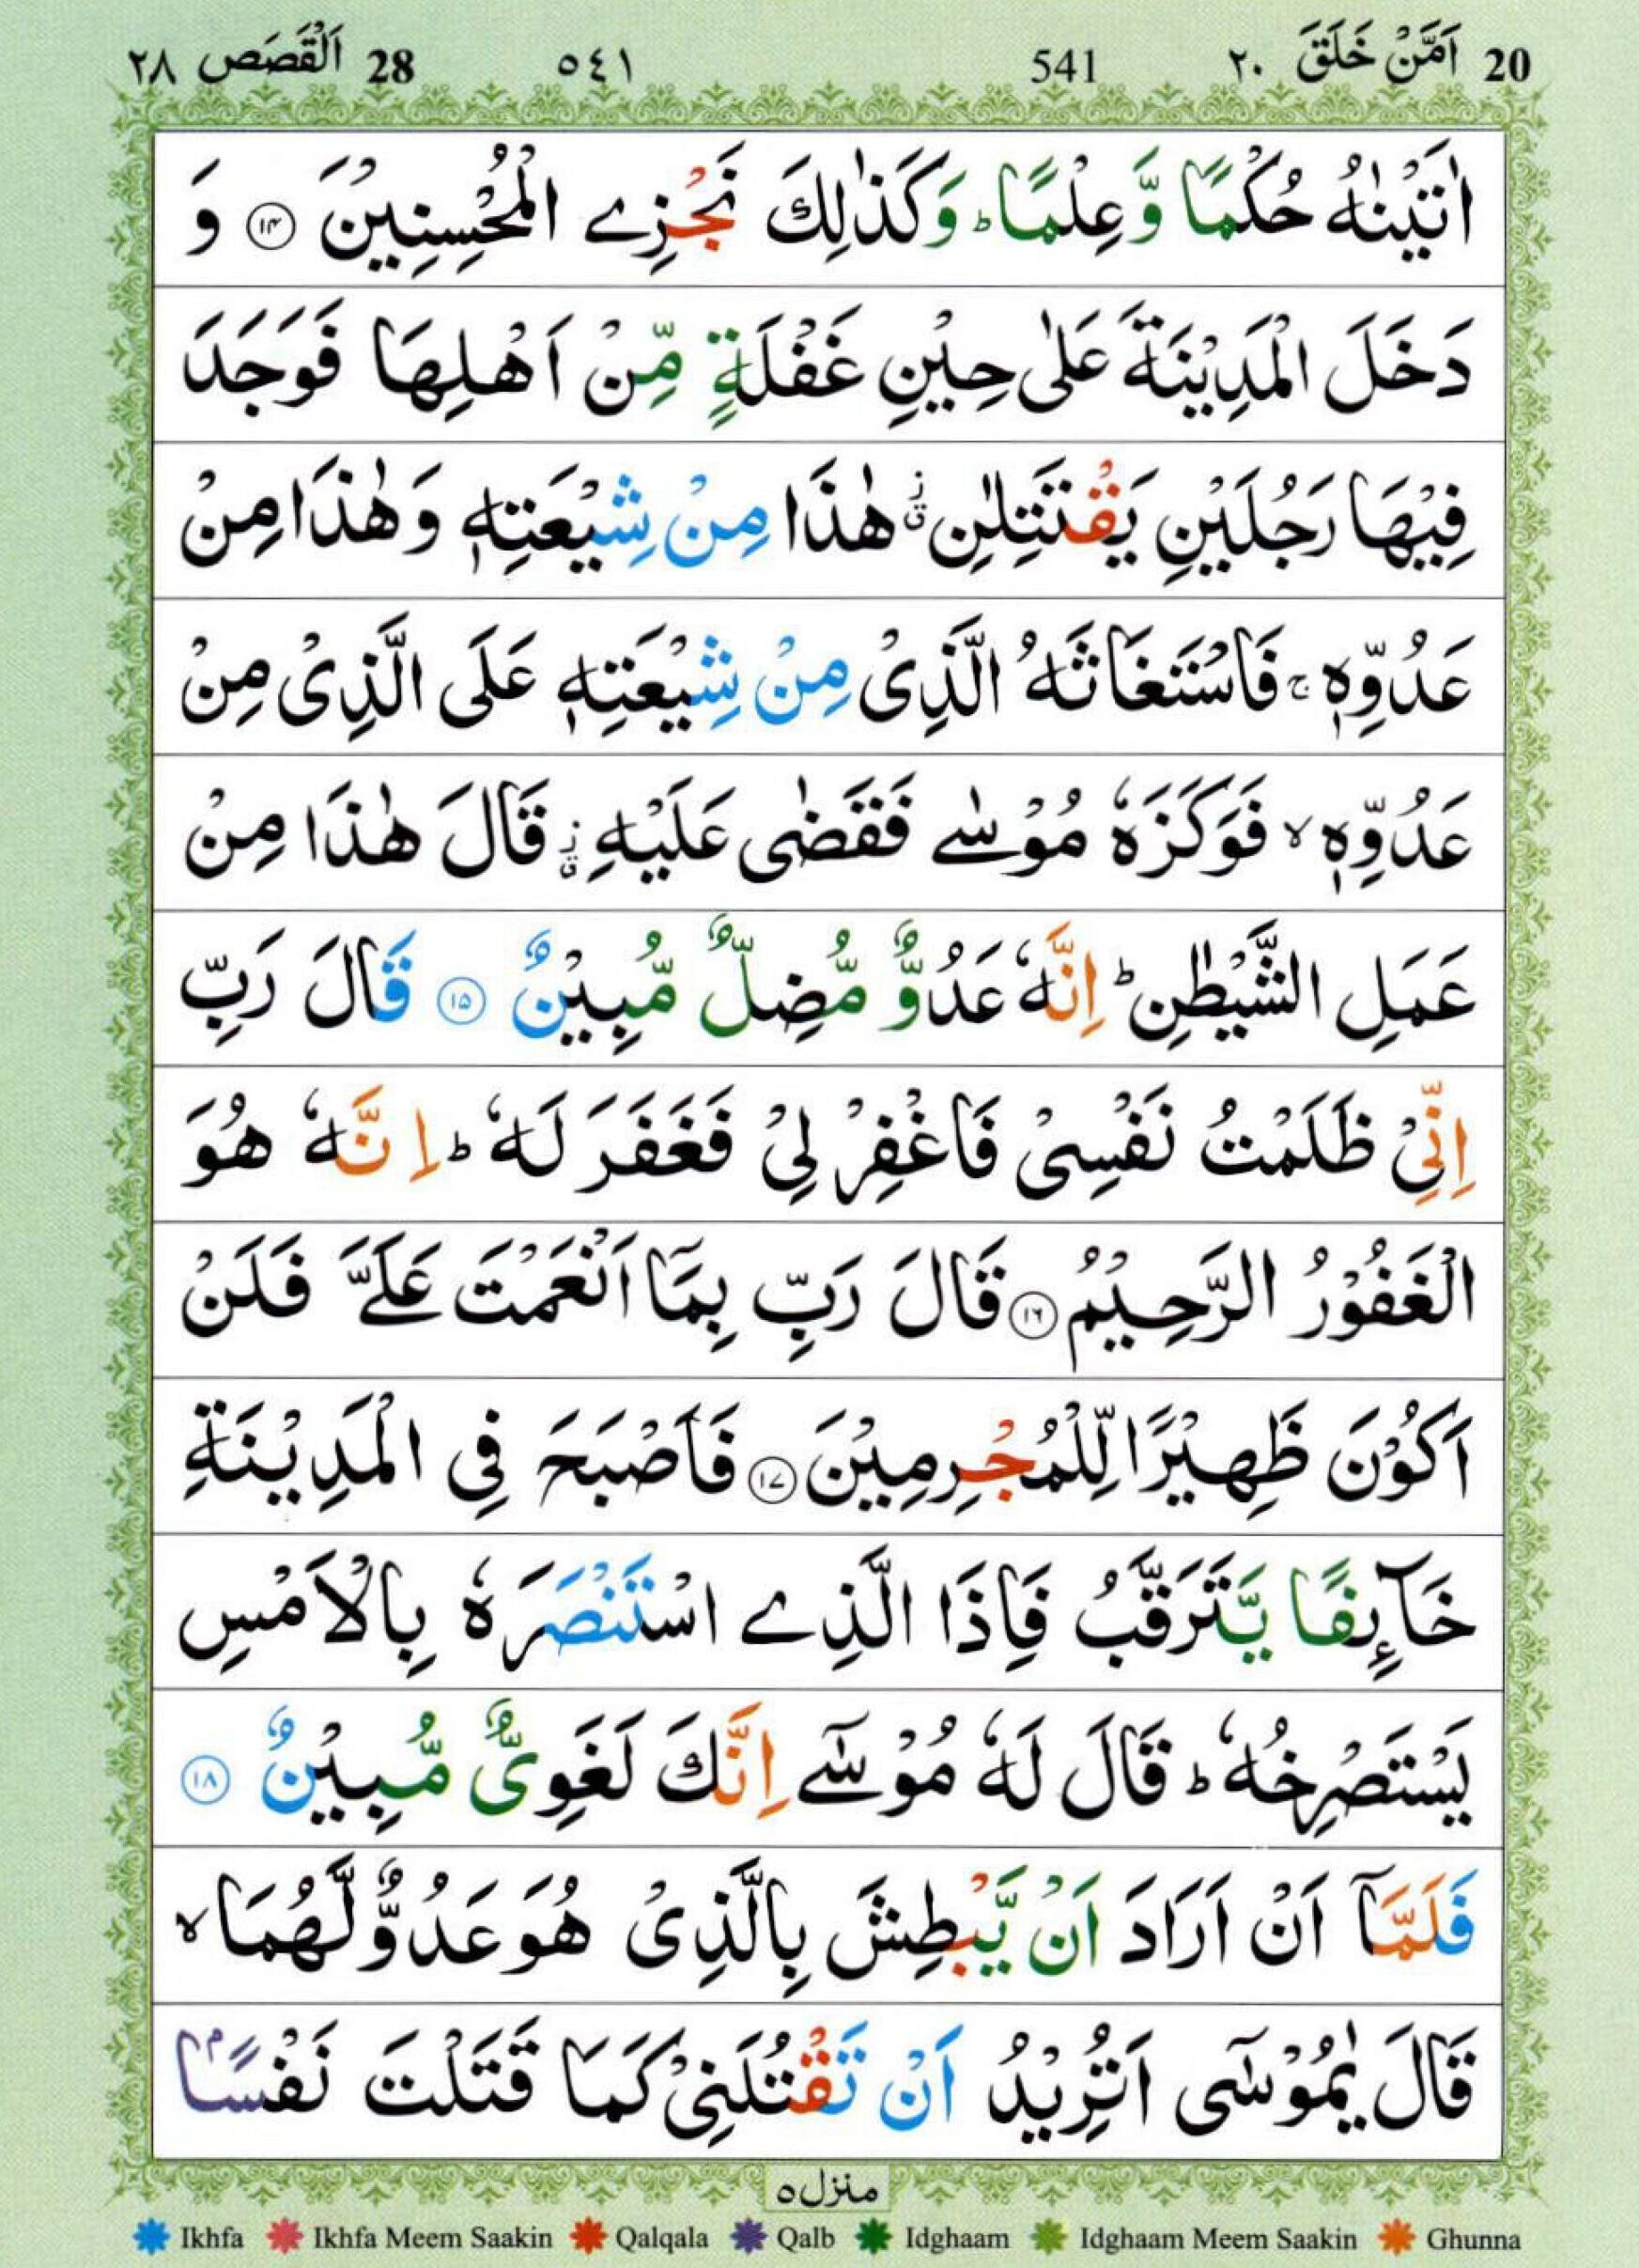 20 اَمَّنْ خَلَقَ ٢٠ 541 ٥٤١ 28 اَلْقَصَص ٢٨
اٰتَيْنٰهُ حُكْمًا وَّعِلْمًا ؕ وَكَذٰلِكَ نَجْزِے الْمُحْسِنِيْنَ ۝۱۴ وَ
دَخَلَ الْمَدِيْنَةَ عَلٰى حِيْنِ غَفْلَةٍ مِّنْ اَهْلِهَا فَوَجَدَ
فِيْهَا رَجُلَيْنِ يَقْتَتِلٰنِ ۫ۗ هٰذَا مِنْ شِيْعَتِهٖ وَهٰذَا مِنْ
عَدُوِّهٖ ۚ فَاسْتَغَاثَهُ الَّذِىْ مِنْ شِيْعَتِهٖ عَلَى الَّذِىْ مِنْ
عَدُوِّهٖ ۙ فَوَكَزَهٗ مُوْسٰے فَقَضٰى عَلَيْهِ ۫ۗ قَالَ هٰذَا مِنْ
عَمَلِ الشَّيْطٰنِ ؕ اِنَّهٗ عَدُوٌّ مُّضِلٌّ مُّبِيْنٌ ۝۱۵ قَالَ رَبِّ
اِنِّىْ ظَلَمْتُ نَفْسِىْ فَاغْفِرْ لِىْ فَغَفَرَ لَهٗ ؕ اِنَّهٗ هُوَ
الْغَفُوْرُ الرَّحِيْمُ ۝۱۶ قَالَ رَبِّ بِمَاۤ اَنْعَمْتَ عَلَىَّ فَلَنْ
اَكُوْنَ ظَهِيْرًا لِّلْمُجْرِمِيْنَ ۝۱۷ فَاَصْبَحَ فِى الْمَدِيْنَةِ
خَآئِفًا يَّتَرَقَّبُ فَاِذَا الَّذِے اسْتَنْصَرَهٗ بِالْاَمْسِ
يَسْتَصْرِخُهٗ ؕ قَالَ لَهٗ مُوْسٰۤے اِنَّكَ لَغَوِىٌّ مُّبِيْنٌ ۝۱۸
فَلَمَّاۤ اَنْ اَرَادَ اَنْ يَّبْطِشَ بِالَّذِىْ هُوَ عَدُوٌّ لَّهُمَا ۙ
قَالَ يٰمُوْسٰۤى اَتُرِيْدُ اَنْ تَقْتُلَنِىْ كَمَا قَتَلْتَ نَفْسًۢا
منزل ٥
Ikhfa Ikhfa Meem Saakin Qalqala Qalb Idghaam Idghaam Meem Saakin Ghunna